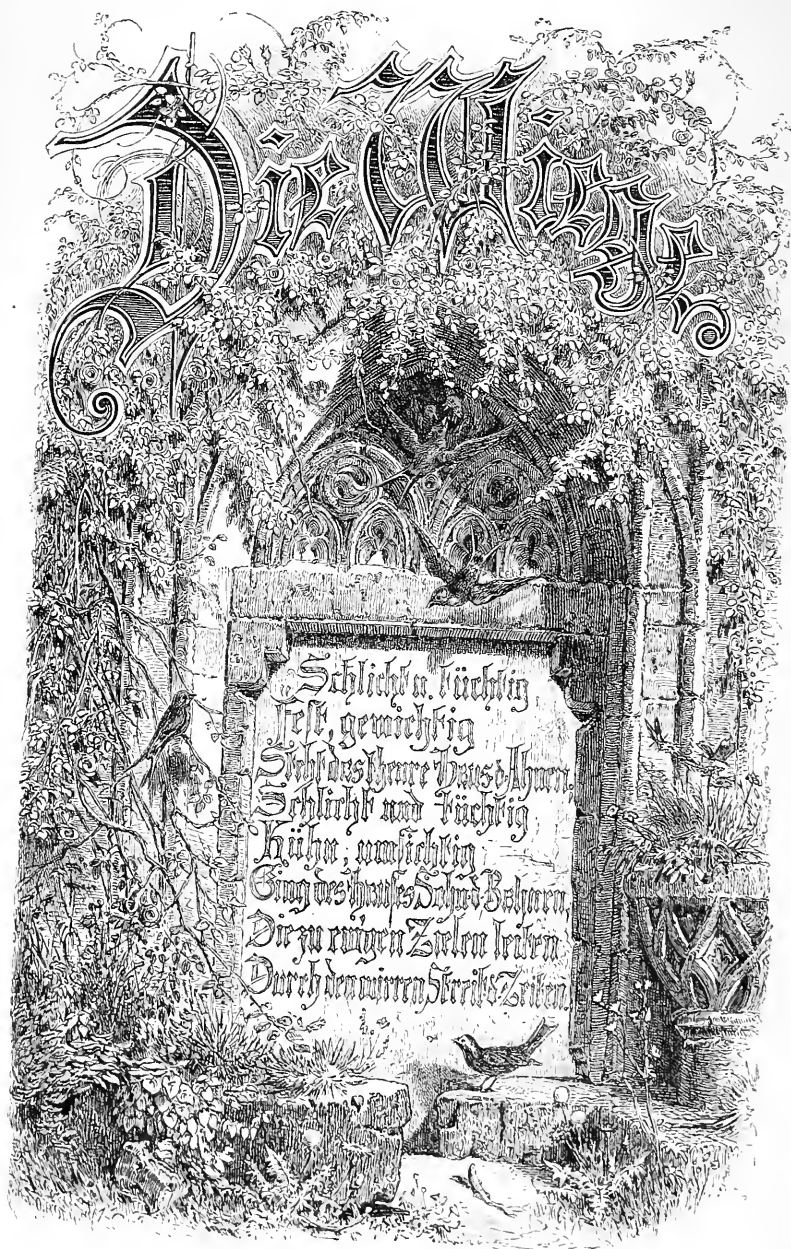 Die Wiege
Schlicht u. tüchtig
Fest, gewichtig
Steht des theure Haus d. Ahnen.
Schlicht und tüchtig
Kühn, umsichtig
Ging des Hauses Sohn d. Bahnen,
Die zu ewigen Zielen leiten
Durch den wirren Streit d. Zeiten